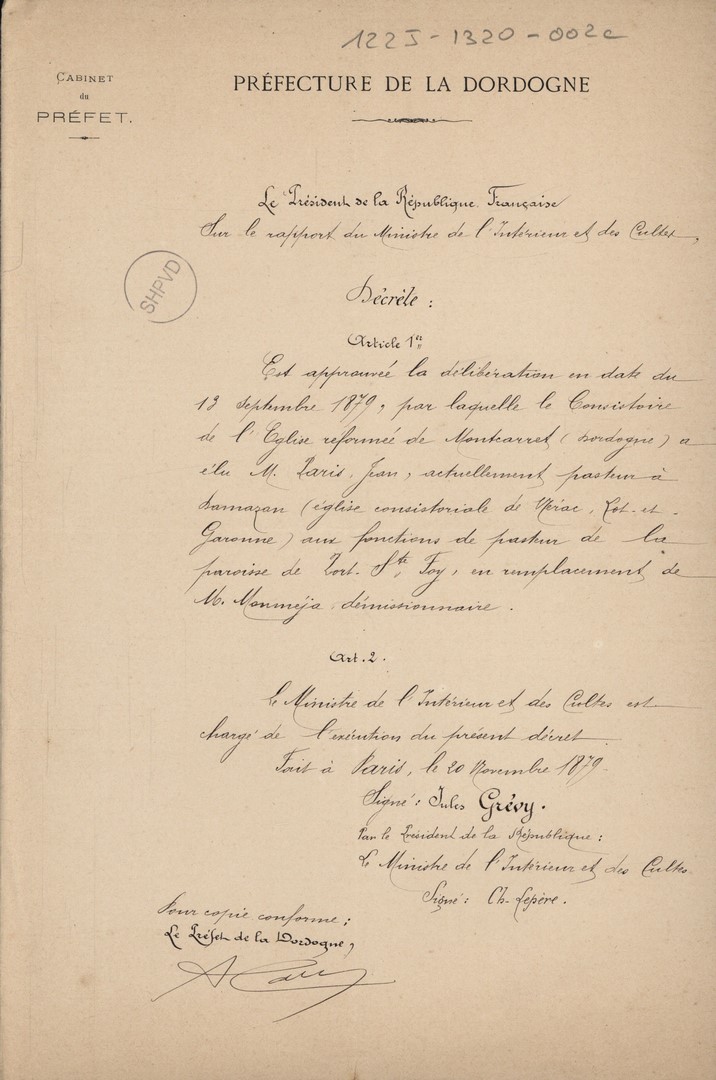 122J-1320-002c
CABINET
du
PRÉFET.
PRÉFECTURE DE LA DORDOGNE
Le Président de la République Française
Sur le rapport du Ministre de l'Intérieur et des Cultes,
SHPVD
Décrète :
Article 1er
Est approuvée la délibération en date du
13 Septembre 1879, par laquelle le Consistoire
de l'Eglise réformée de Montcarret (Dordogne) a
élu M. Paris, Jean, actuellement pasteur à
Damazan (église consistoriale de Nérac, Lot-et-
Garonne) aux fonctions de pasteur de la
paroisse de Port-Ste Foy, en remplacement de
M. Monméja, démissionnaire.
Art. 2.
Le Ministre de l'Intérieur et des Cultes est
chargé de l'exécution du présent décret
Fait à Paris, le 20 Novembre 1879.
Signé : Jules Grévy.
Par le Président de la République :
Le Ministre de l'Intérieur et des Cultes
Signé : Ch. Lepère.
Pour copie conforme ;
Le Préfet de la Dordogne,